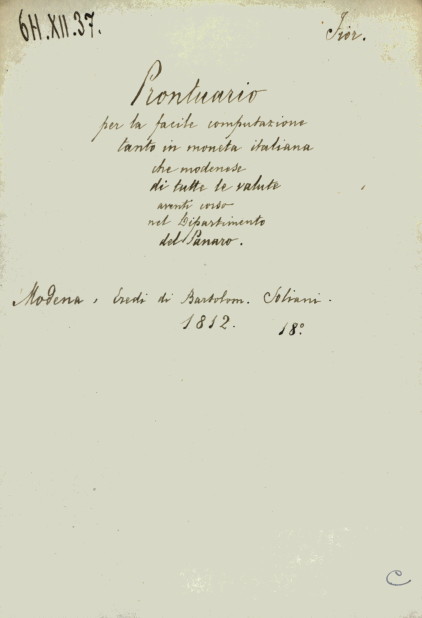 6H.XII.37.
Fior.
Prontuario
per la facile computazione
tanto in moneta italiana
che modenese
di tutte le valute
aventi corso
nel Dipartimento
del Panaro.
Modena, Eredi di Bartolom. Soliani.
1812. 18º
C